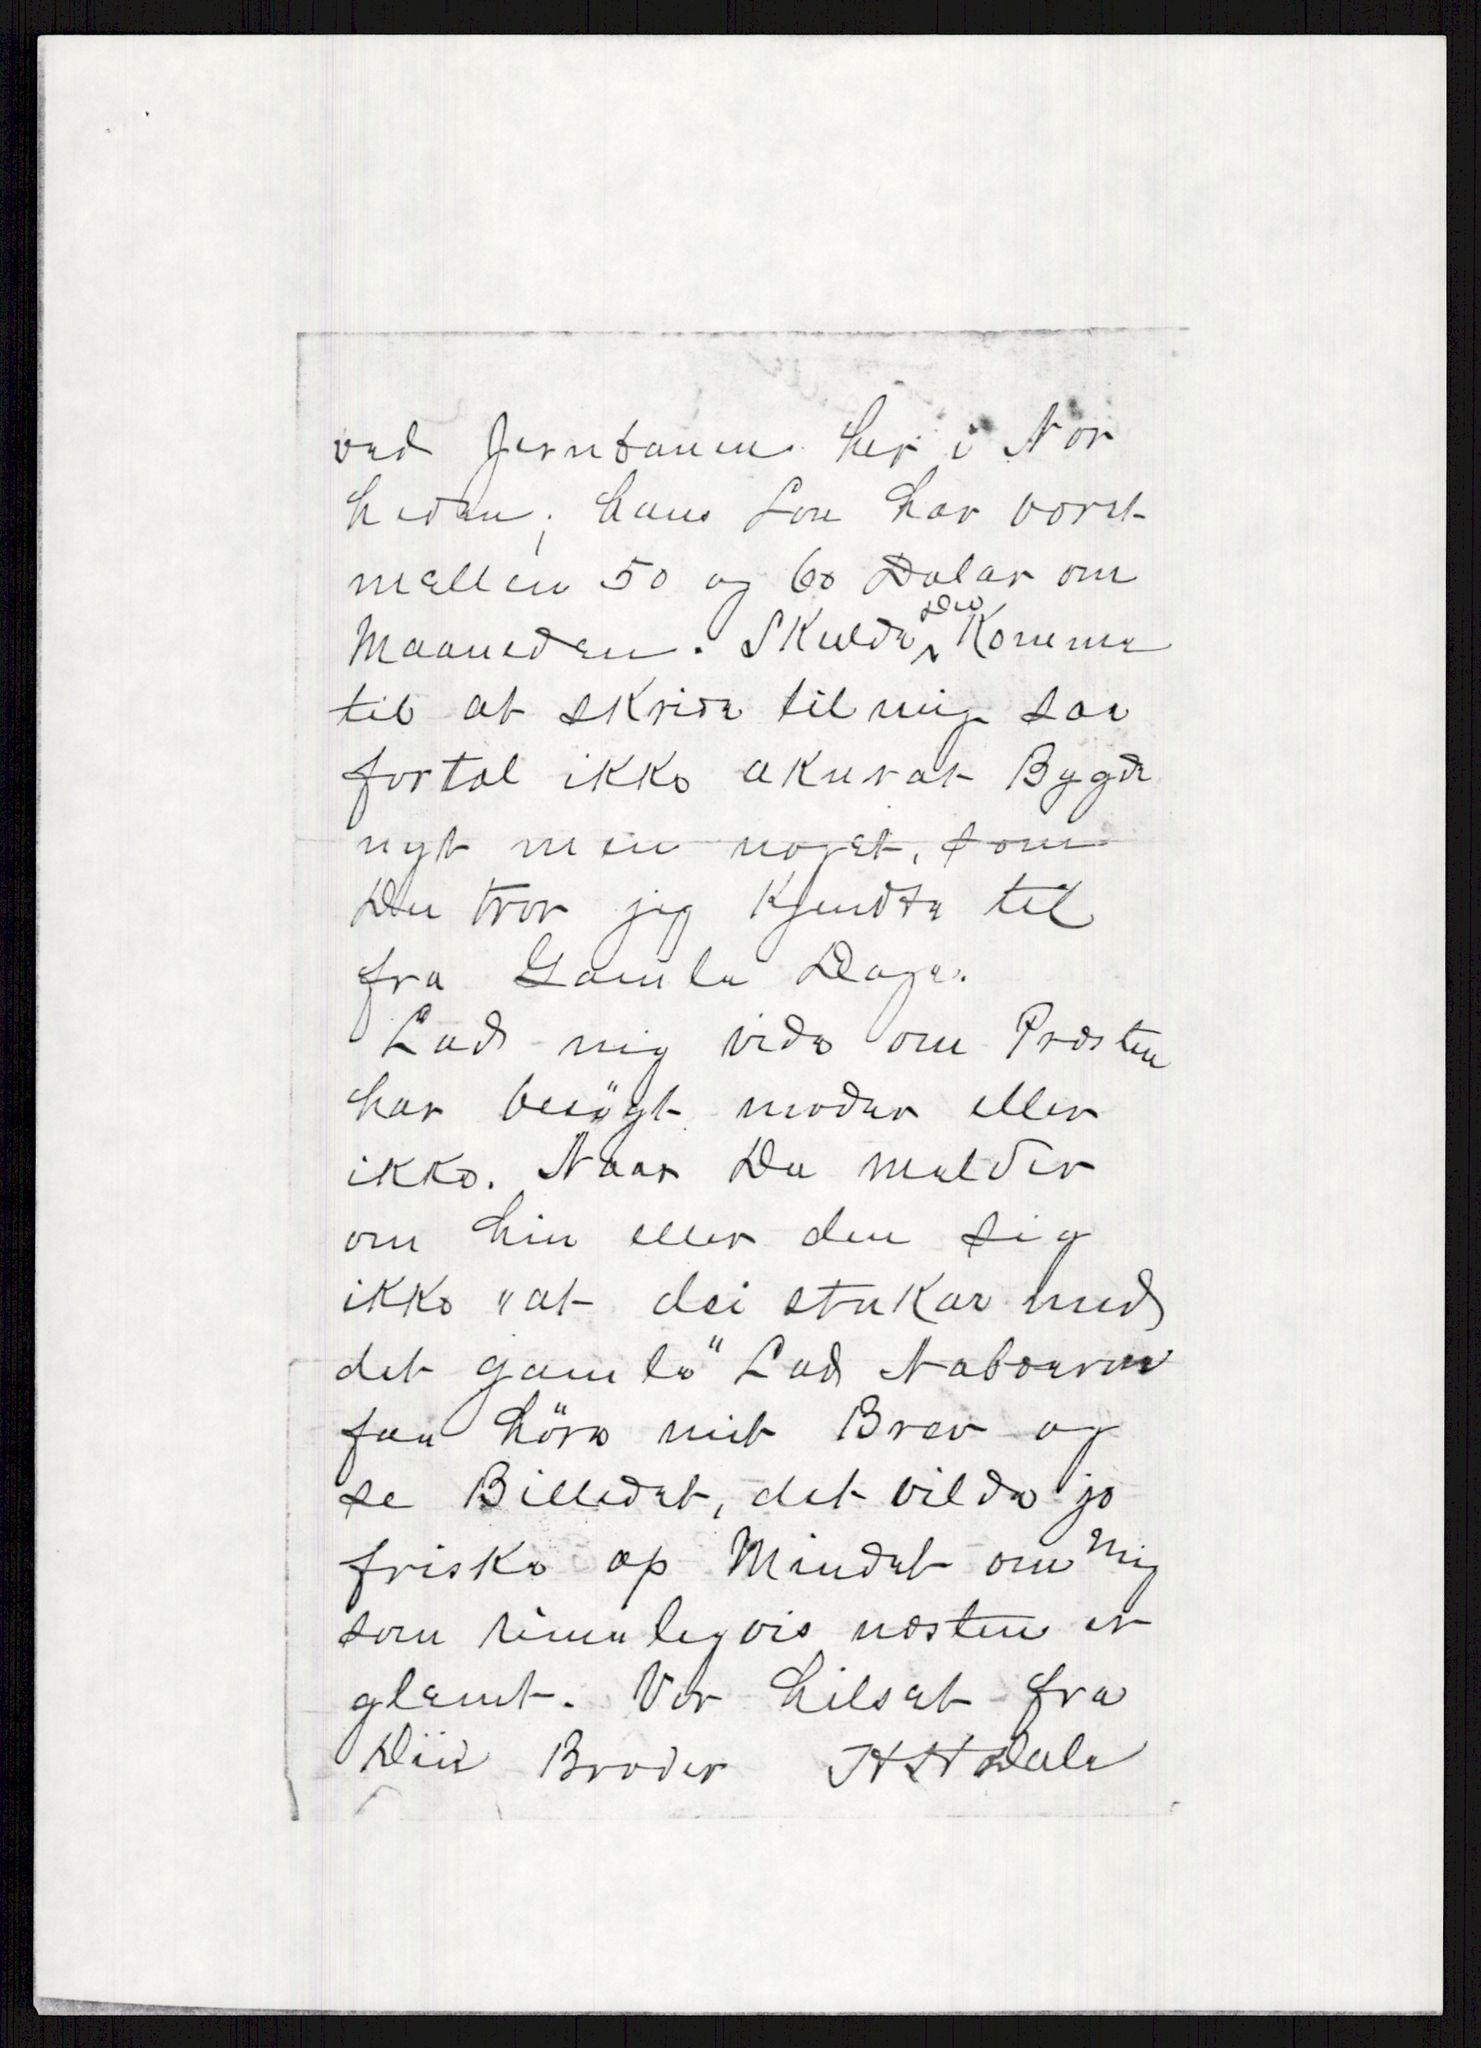 ved Jernbanen her i Nær
heden; hans Løn har været
mellem 50 og 60 Dolar om
Maaneden. Skulde Du komme
til at skrive til mig saa
fortæl ikke akurat Bygde
nyt men noget, som
Du tror jeg kjendte til
fra Gamle Dage.
Lad mig vide om Præsten
har besögt moder eller
ikke. Naar Du melder
om hin eller den sig
ikke "at dei stukar med
det gamle" Lad Naboerne
faa höre mit Brev og
se Billedet, det vilde jo
friske op Mindet om Mig
som rimeligvis næsten er
glemt. Vær hilset fra
Din Broder H H Dale